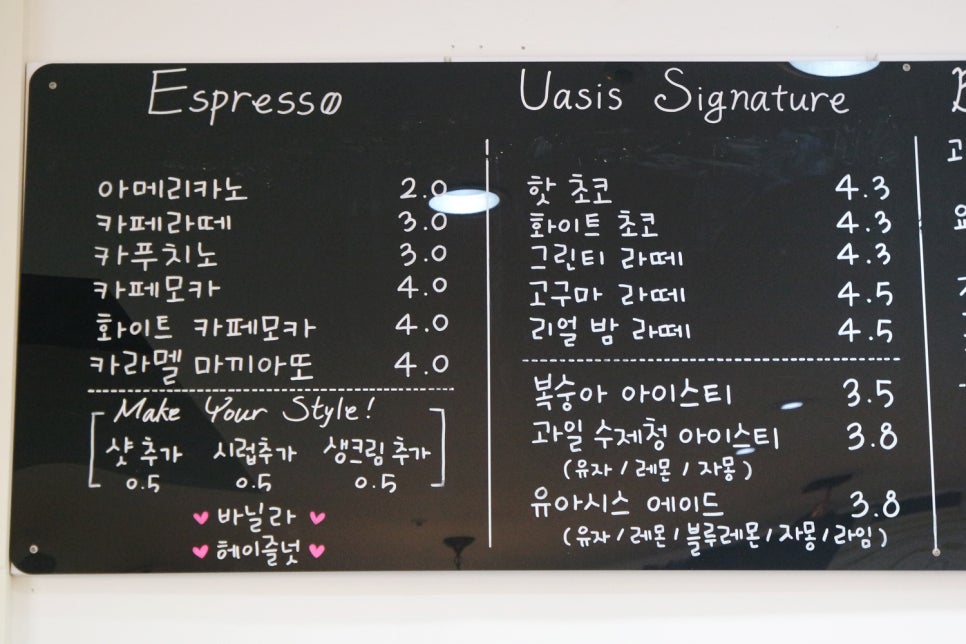 Espresso
아메리카노 2.0
카페라떼 3.0
카푸치노 3.0
카페모카 4.0
화이트 카페모카 4.0
카라멜 마끼아또 4.0
Make Your Style!
샷추가 시럽추가 생크림추가
0.5 0.5 0.5
바닐라
헤이즐넛
Uasis Signature
핫 초코 4.3
화이트 초코 4.3
그린티 라떼 4.3
고구마 라떼 4.5
리얼 밤 라떼 4.5
복숭아 아이스티 3.5
과일 수제청 아이스티 3.8
(유자/레몬/자몽)
유아시스 에이드 3.8
(유자/레몬/블루레몬/자몽/라임)